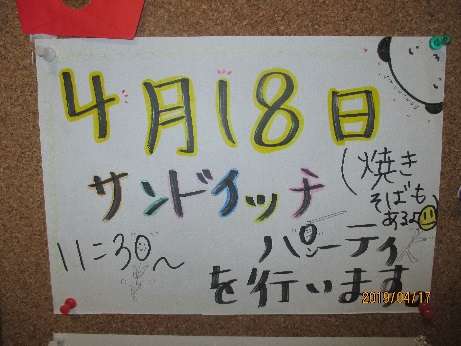 4月18日
サンドイッチ
(焼き
そばも
ある♪
11:30～
パーティ
を行います。
2019/04/17